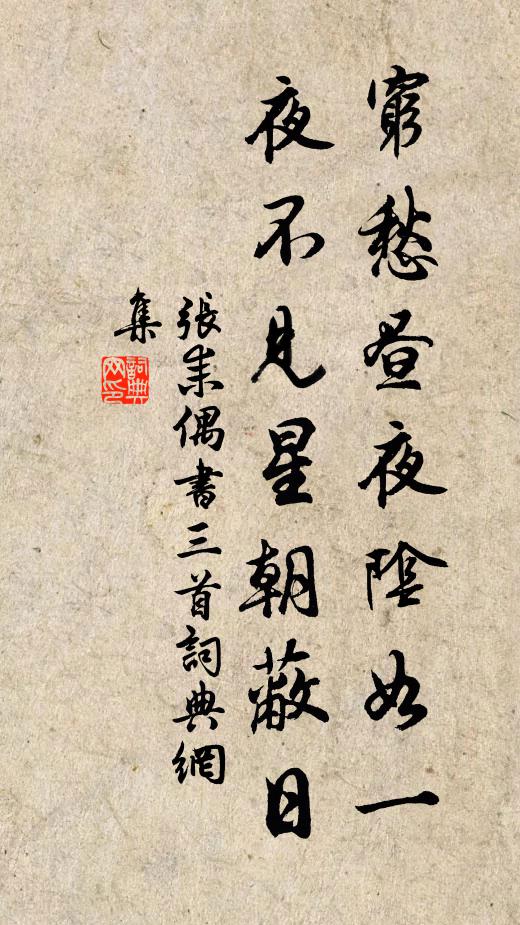 窮愁昼夜陰如一
夜不見星朝蔽日
張耒偶書三首詞典網
集
詞典
网印